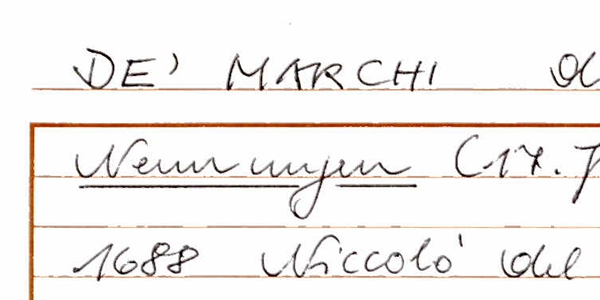 DE' MARCHI
Nennungen (17. J
1688 Niccolò del